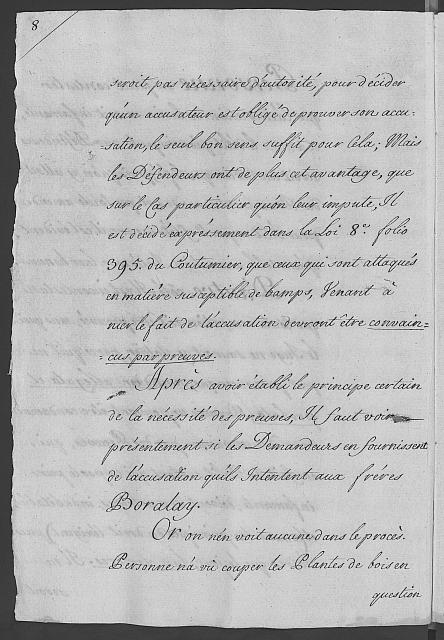 8
seroit pas nécessaire d'autorité, pour décider
qu'un accusateur est obligé de prouver son accu-
sation, le seul bon sens suffit pour Cela; Mais
les Défendeurs ont de plus cet avantage, que
sur le Cas particulier qu'on leur impute, Il
est décidé expréssement dans la Loi 8.e folio
395. du Coutumier, que ceux qui sont attaqués
en matiére susceptible de bamps, Venant à
nier le fait de l'accusation devront être convain-
cus par preuves.
Après avoir établi le principe certain
de la nécessité des preuves, Il faut voir
présentement si les Demandeurs en fournissent
de l'accusation qu'ils Intentent aux fréres
Boralay.
Or on n'en voit aucune dans le procès.
Personne n'a vû couper les Plantes de bois en
question